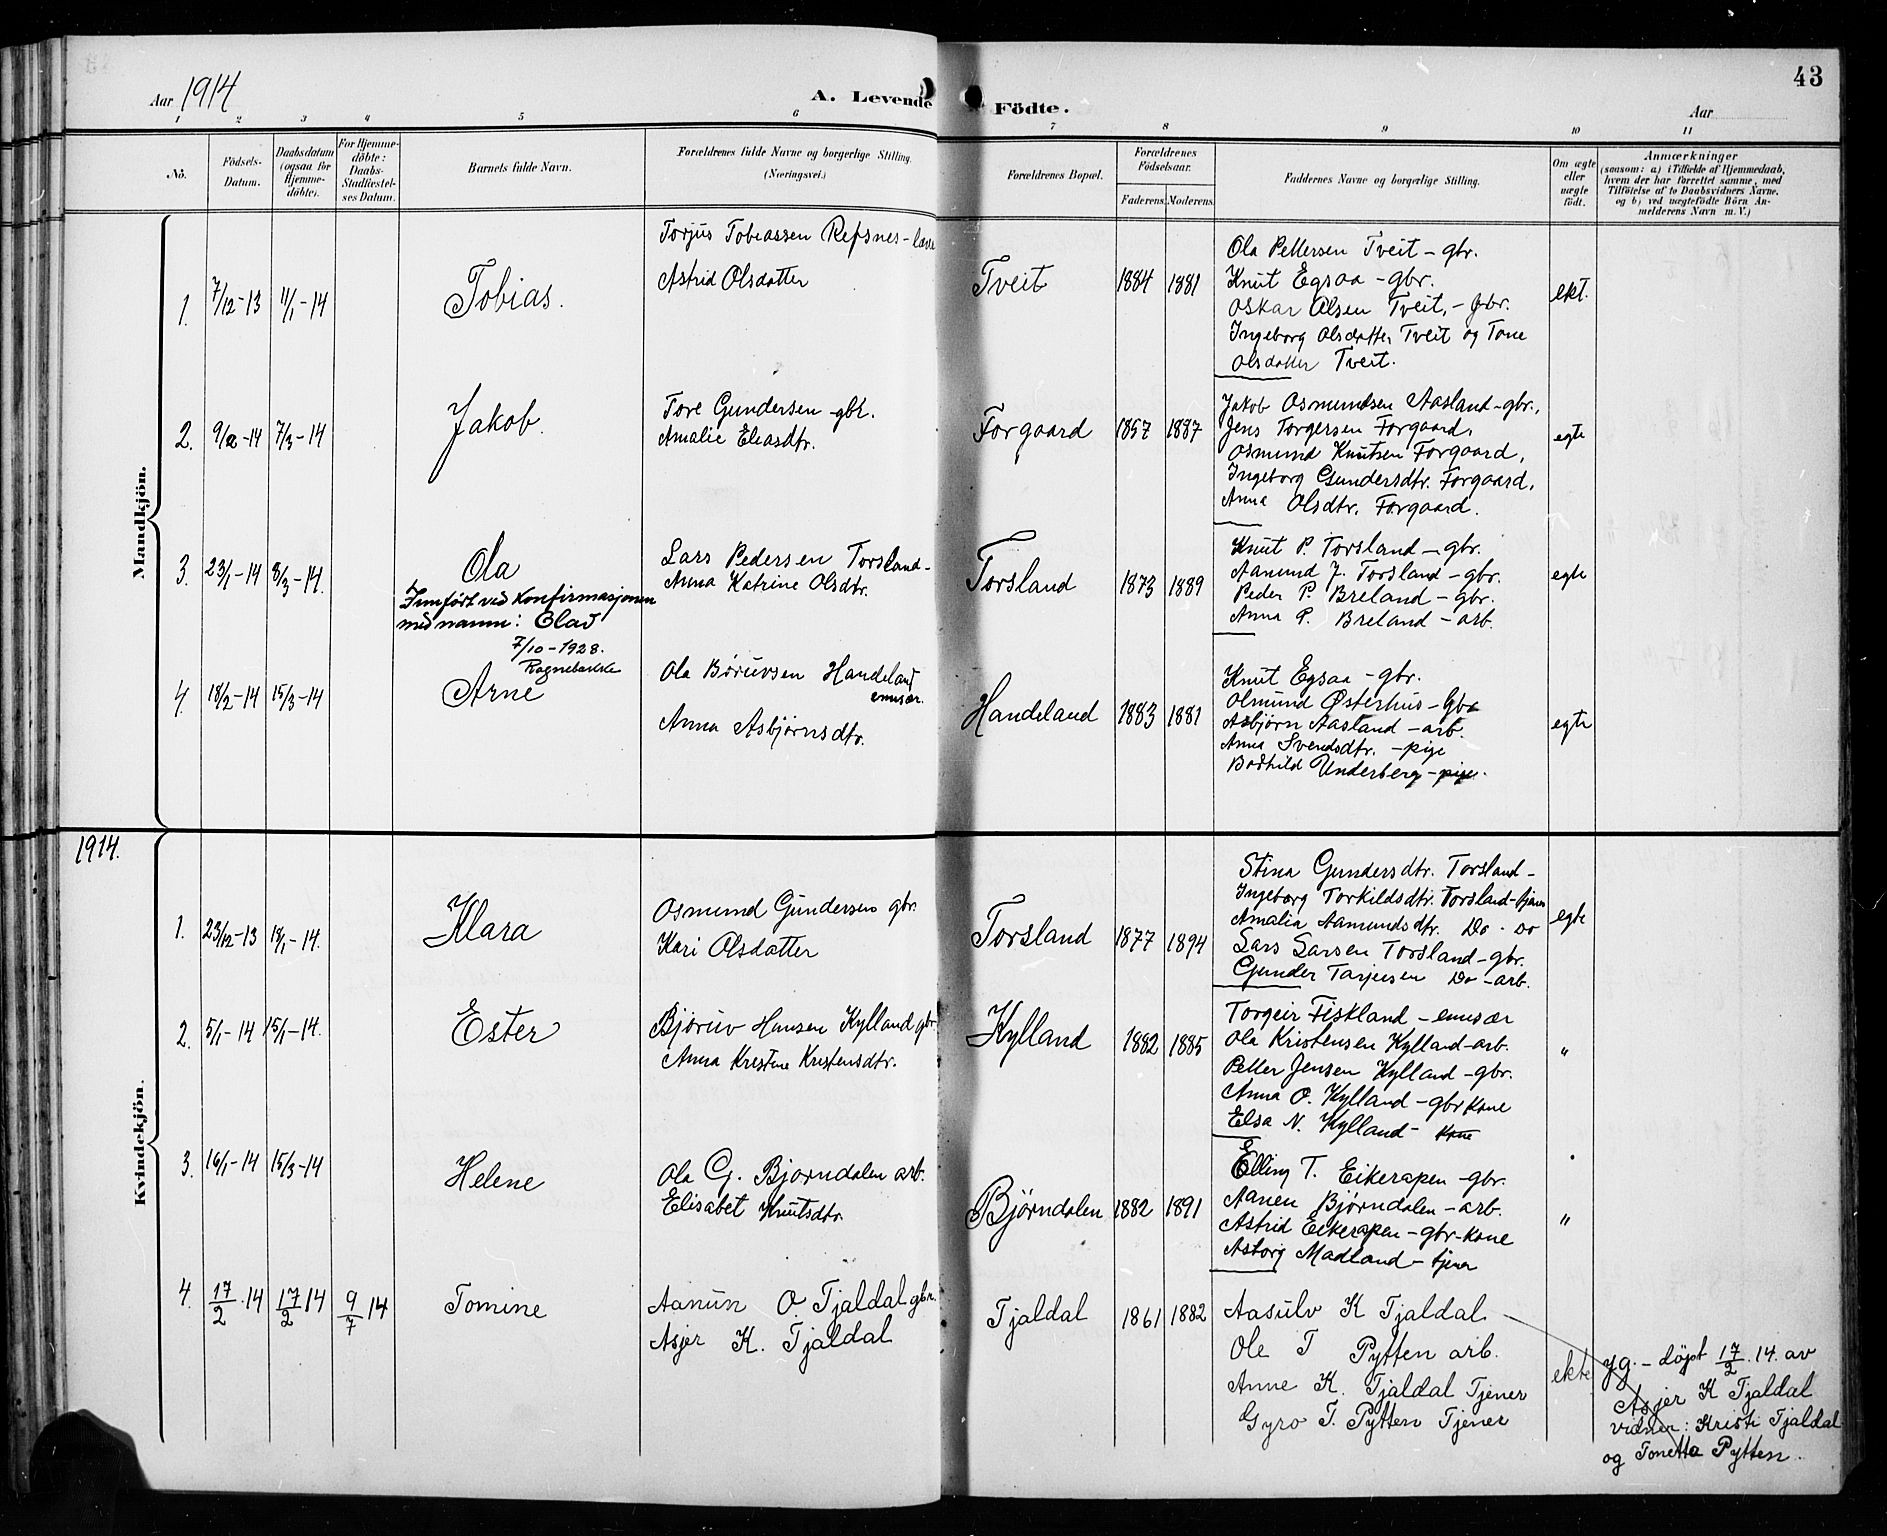 43
Aar 1914
A. Levende Födte.
Aar
1 2 3 4 5 6 7 8 9 10 11
No.
Födsels-Datum.
Daabsdatum (ogsaa for Hjemme-döbte).
For Hjemme-döbte: Daabs-Stadfæstel-ses Datum.
Barnets fulde Navn.
Forældrenes fulde Navne og borgerlige Stilling.
(Næringsvei.)
Forældrenes Bopæl.
Forældrenes Födselsaar.
Faderens. Moderens.
Faddernes Navne og borgerlige Stilling.
Om ægte eller uægte födt.
Anmærkninger
(saasom: a) i Tilfælde af Hjemmedaab,
hvem der har forrettet samme, med
Tilföielse af to Daabsvidners Navne,
og b) ved uægtefödte Börn An-
melderens Navn m. V.)
Mandkjön.
1. 7/12-13 11/1-14
Tobias.
Torjus Tobiassen Refsnes -
Astrid Olsdatter
Tveit 1884 1881
Ola Pettersen Tveit - gbr.
Knut Egsaa - gbr.
Oskar Olsen Tveit, - gbr.
Ingeborg Olsdatter Tveit og Tone
Olsdatter Tveit.
ekt.
2. 9/2-14 7/3-14
Jakob.
Tore Gundersen gbr.
Amalie Eliasdtr.
Forgaard 1857 1887
Jakob Osmundsen Aasland - gbr.,
Jens Torgersen Forgaard,
Osmund Knutsen Forgaard,
Ingeborg Gundersdtr. Forgaard,
Anna Olsdtr. Forgaard.
egte
3. 23/1-14 8/3-14.
Ola
Innført ved Konfirmasjonen
med namn: Olav
7/10-1928.
Lars Pedersen Torsland -
Anna Katrine Olsdtr.
Torsland 1873 1889
Knut P. Torsland - gbr.
Aanund J. Torsland - gbr.
Peder P. Breland - gbr.
Anna P. Breland - arb.
egte
4. 18/2-14 15/3-14
Arne
Ola Børuvsen Handeland
emisær.
Anna Asbjørnsdtr.
Handeland 1883 1881
Knut Egsaa - gbr.
Olmund Østerhus - gbr
Asbjørn Aasland - arb.
Anna Svendsdtr. - pige
Bodhild Underberg - pige.
egte
1914.
Kvindekjön.
1. 23/12-13 18/1-14.
Klara
Osmund Gundersen gbr.
Kari Olsdatter
Torsland 1877 1894
Stina Gundersdtr. Torsland -
Ingeborg Torkildsdtr. Torsland - tjener
Amalia Aamundsdtr. Do - Do
Lars Larsen Torsland - gbr.
Gunder Tarjeisen Do - arb.
egte
2. 5/1-14 15/1-14.
Ester
Bjøruv Hansen Kylland gbr
Anna Kristine Kristensdtr.
Kylland 1882 1885
Torgeir Fiskland - emisær
Ola Kristensen Kylland - arb.
Petter Jensen Kylland - gbr.
Anna O. Kylland - gbr kone
Elsa N. Kylland - kone
"
3. 16/1-14 15/3-14
Helene
Ola G. Bjørndalen arb.
Elisabet Knutsdtr
Bjørndalen 1882 1891
Elling T. Eikerapen - gbr.
Aanen Bjørndalen - arb.
Astrid Eikerapen - gbr-kone
Asborg Madland - tjener
"
4. 17/2.14 17/2 14 9/7 14
Tomine
Aanun O Tjaldal gbr.
Asjer K. Tjaldal
Tjaldal 1861 1882
Aasulv K Tjaldal
Ole T Pytten arb.
Anne K. Tjaldal Tjener
Gyro T. Pytten Tjener
ekte
Hg. - døpt 17/2.14. av
Asjer K Tjaldal
vidner: Kristi Tjaldal
og Tonetta Pytten.